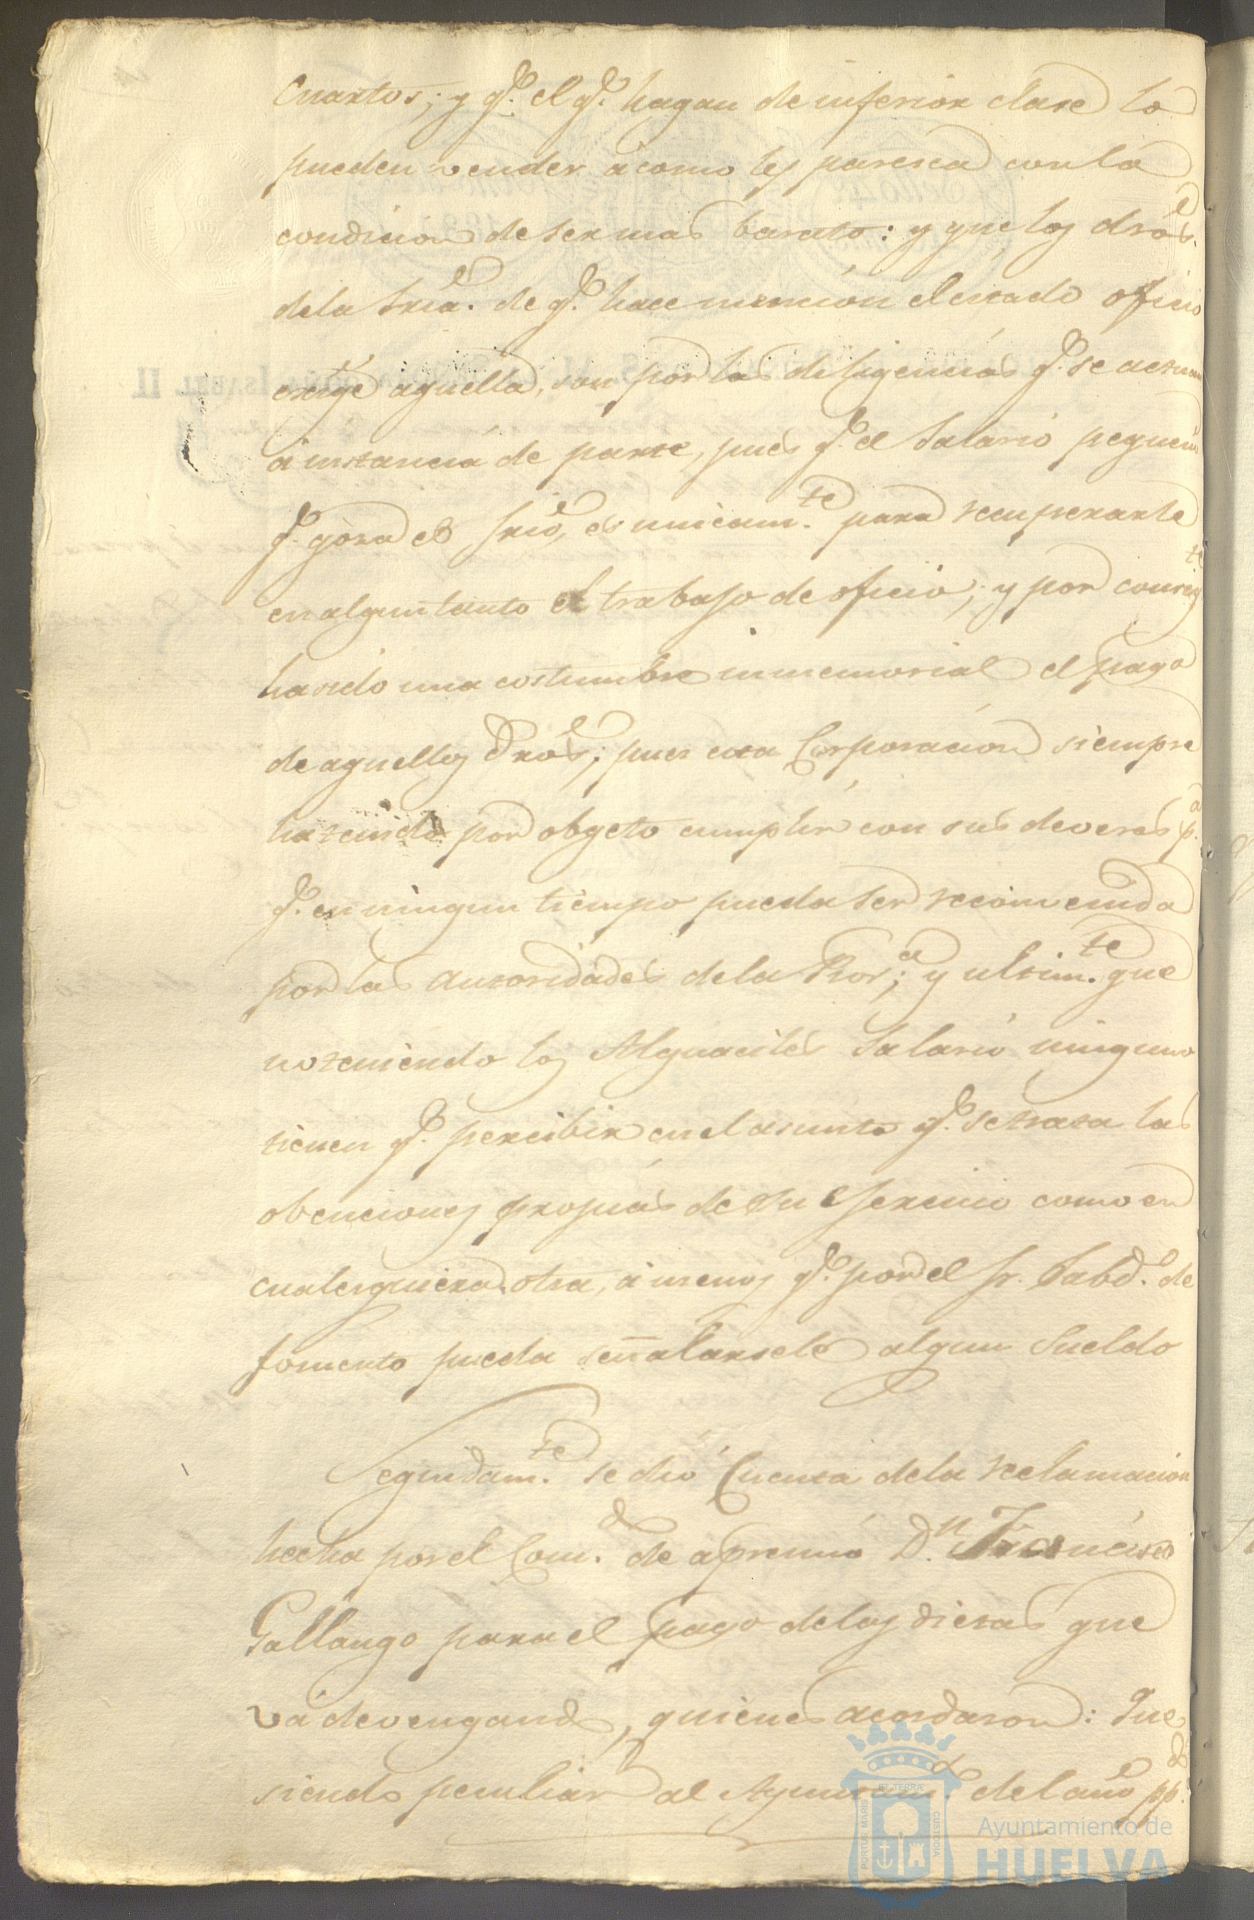 Cuartos; y q.e el q.e hagan de inferior clase lo
pueden vender á como les paresca con la
condicion de ser mas barato: y que los dros.
de la Sria. de q.e hace mencion el citado oficio
exige aquella, son por las diligencias q.e se actuan
á instancia de parte, pues q.e el Salario pequeño
q.e goza el Srio, es unicam.te para recuperarle
en algun tanto el trabajo de oficio; y por consig.te
ha sido una costumbre inmemorial el pago
de aquellos Dros; pues esta Corporacion siempre
ha tenido por obgeto cumplir con sus deveres p.a
q.e en ningun tiempo pueda ser reconvenida
por las autoridades de la Prov.a; y ultim.te que
no teniendo los Alguaciles Salario ninguno
tienen q.e percibir en el asunto q.e se trata las
obenciones propias de su egercicio como en
cualesquiera otra, á menos q.e por el Sr. Subd.o de
fomento pueda señalarsele algun Sueldo
Seguidam.te se dió Cuenta de la reclamacion
hecha por el Com.do de apremio D.n Francisco
Gallango para el pago de las dietas que
vá devengando, quienes acordaron: Que
siendo peculiar al Ayuntam.to del año pp.do
PORTUS MARIS ET TERRAE CUSTODIA
Ayuntamiento de
HUELVA